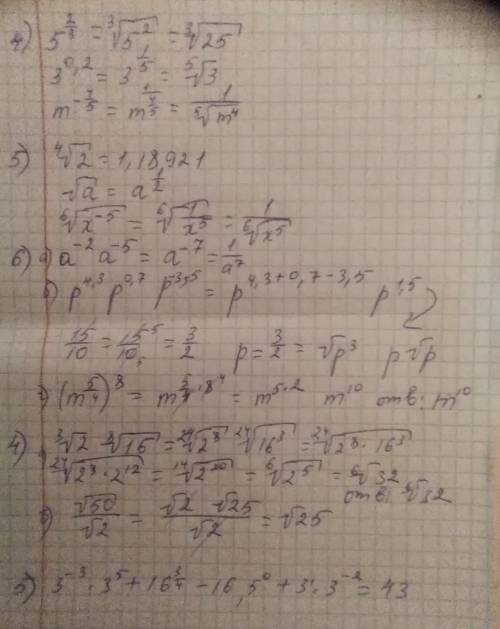 4) 5^{2/3} = ∛(5^2) = ∛25
3^{0,2} = 3^{1/5} = ⁵√3
m^{-4/5} = m^{1/(4/5)} = 1/⁵√(m^4)
5) ⁴√2 = 1,18921
√a = a^{1/2}
⁶√(x^{-5}) = ⁶√(1/x^5) = 1/⁶√(x^5)
6) a) a^{-2} a^{-5} = a^{-7} = 1/a^7
b) p^{4,3} p^{0,7} p^{-3,5} = p^{4,3+0,7-3,5} p^{1,5}
15/10 = 15/10 : 5 = 3/2 p = 3/2 = √p^3 p√p
(m^{5/4})^8 = m^{5/4 · 8} = m^{5·2} m^{10} отв: m^{10}
4) ∛2 · ⁸√16 = ²⁴√(2^8) ²⁴√(16^3) = ²⁴√(2^8 · 16^3)
²⁴√(2^8 · 2^{12}) = ¹⁴√(2^{20}) = ⁶√(2^5) = ⁶√32
отв: ⁶√32
б) √50/√2 = √2 √25/√2 = √25
5) 3^{-3} · 3^5 + 16^{3/4} - 16,5^0 + 3^1 · 3^{-2} = 43